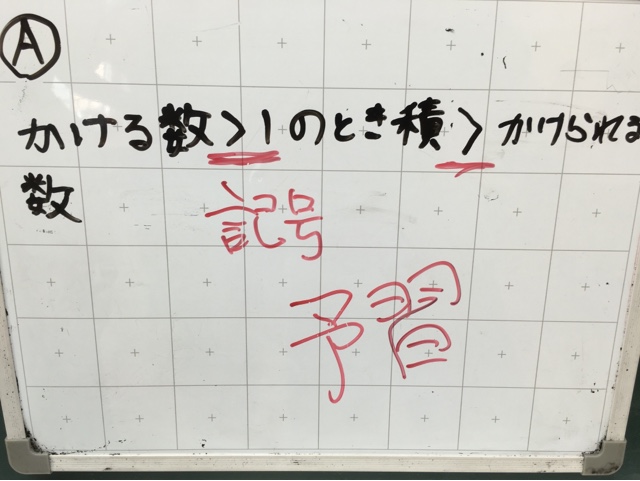 Ⓐ
かける数>1のとき積>かけられる
数
記号
予習